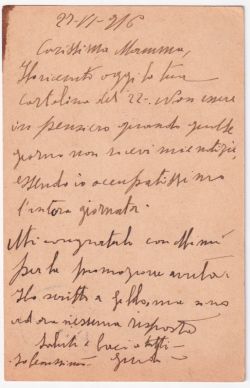 27-VI-916
Carissima Mamma,
Ho ricevuto oggi la tua
cartolina del 22-. Non essere
in pensiero quando qualche
giorno non ricevi mie notizie,
essendo io occupatissimo
l'intera giornata.
Mi congratulo con Mimì
per la promozione avuta.
Ho scritto a ma
ancora nessuna risposta
Saluti e baci a tutti